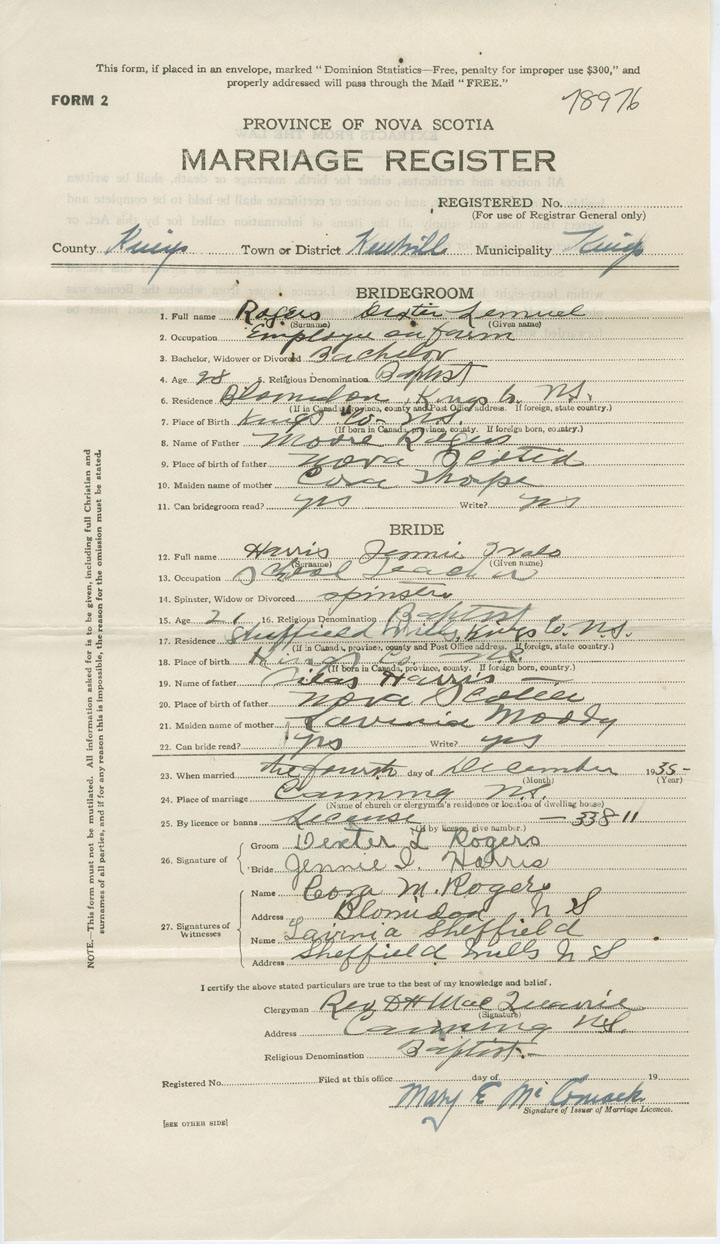 This form, if placed in an envelope, marked “Dominion Statistics—Free, penalty for improper use $300,” and
properly addressed will pass through the Mail “FREE.”
FORM 2
78976
PROVINCE OF NOVA SCOTIA
MARRIAGE REGISTER
REGISTERED No.
(For use of Registrar General only)
County Kings Town or District Kentville Municipality Kings
BRIDEGROOM
1. Full name Rogers Dexter Lemuel
(Surname) (Given name)
2. Occupation Employe on farm
3. Bachelor, Widower or Divorced Bachelor
4. Age 28 5. Religious Denomination Baptist
6. Residence Blomidon, Kings Co. N.S.
(If in Canada, province, county and Post Office address. If foreign, state country.)
7. Place of Birth Kings Co. N.S.
(If born in Canada, province, county. If foreign, country.)
8. Name of Father Moore Rogers
9. Place of birth of father Nova Scotia
10. Maiden name of mother Cora Thorpe
11. Can bridegroom read? yes Write? yes
BRIDE
12. Full name Harris Jennie
(Surname) (Given name)
13. Occupation School Teacher
14. Spinster, Widow or Divorced spinster
15. Age 21 16. Religious Denomination Baptist
17. Residence Sheffield Mills, Kings Co. N.S.
(If in Canada, province, county and Post Office address. If foreign, state country.)
18. Place of birth Kings Co. N.S.
(If born in Canada, province, county. If foreign, country.)
19. Name of father Silas Harris
20. Place of birth of father Nova Scotia
21. Maiden name of mother Lavinia Moody
22. Can bride read? yes Write? yes
23. When married the fourth day of December 1935-
(Month) (Year)
24. Place of marriage Canning N.S.
(Name of church or clergyman's residence or location of dwelling house)
25. By licence or banns License — 33811
(If by licence, give number.)
26. Signature of { Groom Dexter L Rogers
Bride Jennie I. Harris
27. Signatures of Witnesses { Name Cora M. Rogers
Address Blomidon N S
Name Lavinia Sheffield
Address Sheffield Mills N S
I certify the above stated particulars are true to the best of my knowledge and belief.
Clergyman Rev D H MacQuarrie
(Signature)
Address Canning N.S.
Religious Denomination Baptist.
Registered No. Filed at this office day of 19
Mary E McComack
Signature of Issuer of Marriage Licences.
[SEE OTHER SIDE]
NOTE.—This form must not be mutilated. All information asked for is to be given, including full Christian and
surnames of all parties, and if for any reason this is impossible, the reason for the omission must be stated.